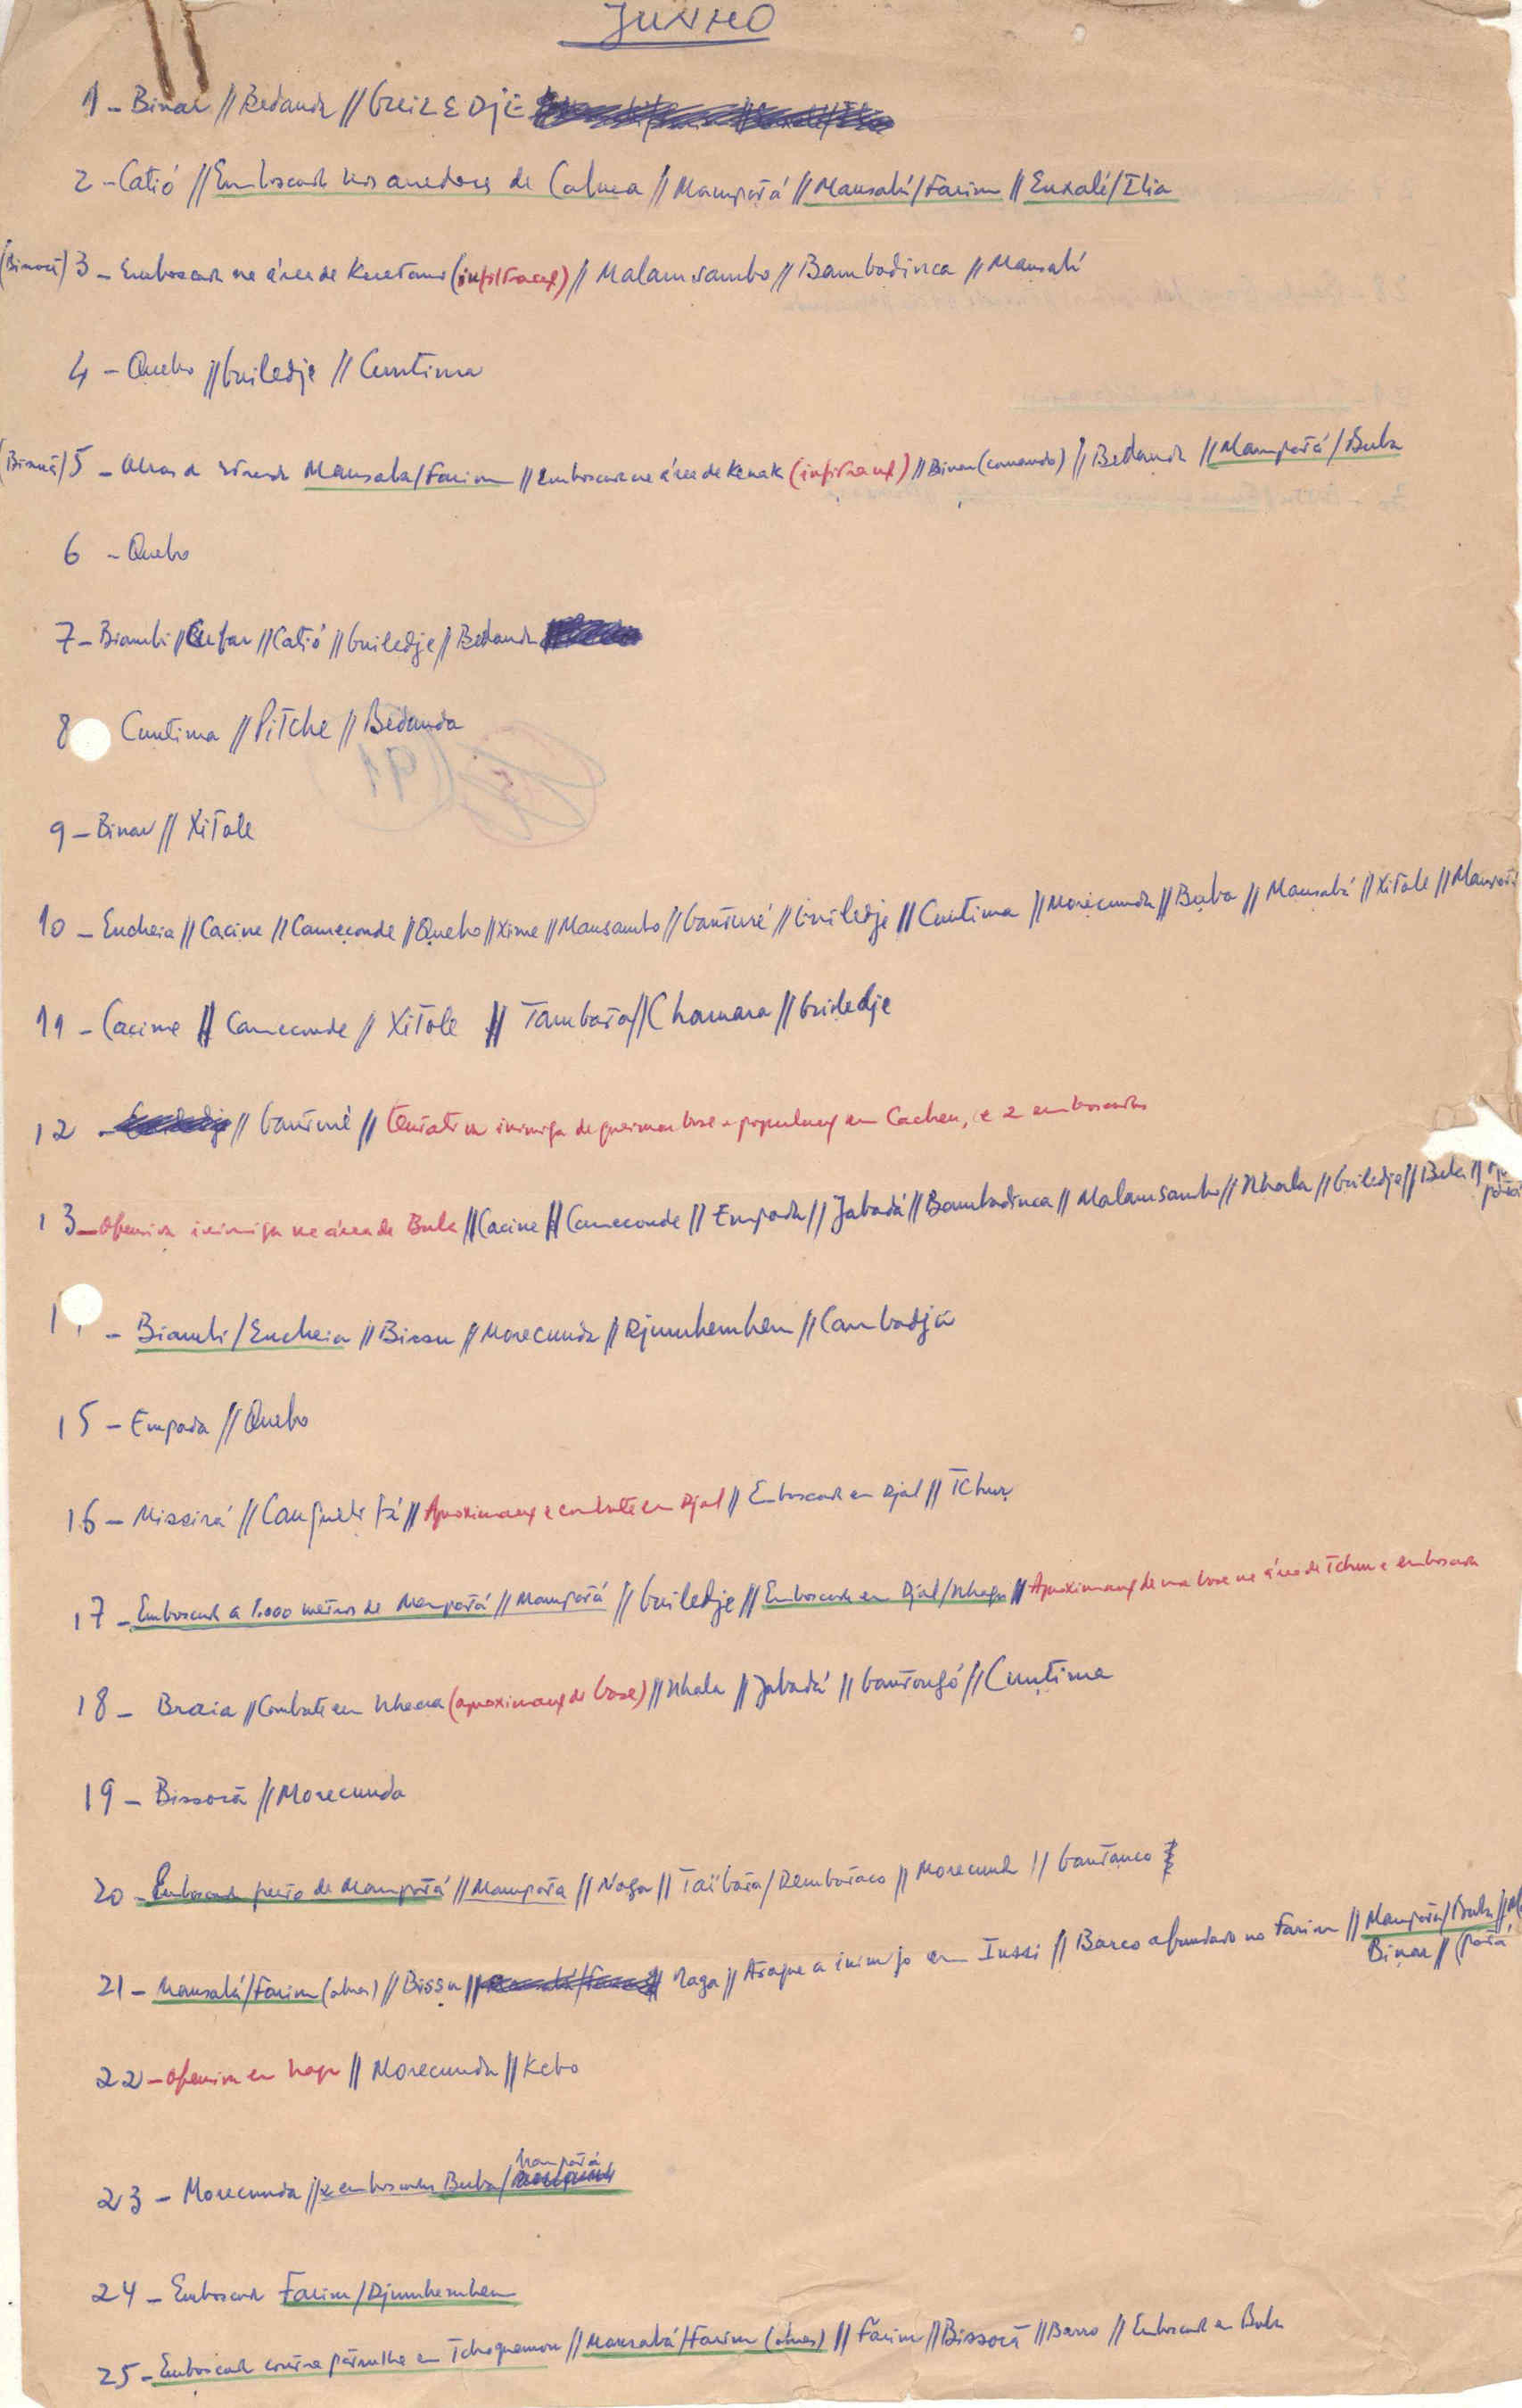 JUNHO
1 - Binar // Bedanda // GUILEDJE
2 - Catió // Emboscada nos arredores de // Mampatá // Mansabá/Farim // Enxalé/Ilia
(Binar) 3 - Emboscada na área de (infiltraç) // Malamsambo // Bambadinca // Mansabá
4 - Quebo // Guiledje // Cuntima
5 - Obras da estrada Mansaba/Farim // Emboscada na área de (infiltraç) // Binar (comando) // Bedanda // Mampatá/Buba
6 - Quebo
7 - Biambi // Cufar // Catió // Guiledje // Bedanda
8 Cuntima // Pitche // Bedanda
9 - Binar // Xitole
10 - Encheia // Cacine // Cameconde // Quebo // Xime // Mansambo // Ganturé // Guiledje // Cuntima // Morecunda // Buba // Mansabá // Xitole // Mampatá
11 - Cacine // Cameconde // Xitole // Tambata // Chamara // Guiledje
12 - // Ganturé // Tentativa inimiga de queimar base e populaç em Cacheu, e 2 emboscadas
13 - Ofensiva inimiga na área de Bula // Cacine // Cameconde // Empada // Jabadá // Bambadinca // Malamsambo // Nhala // Guiledje // Buba //
1 - Biambi/Encheia // Bissu // Morecunda // Djumbembem // Cambadjá
15 - Empada // Quebo
16 - Missirá // // Aproximaç e combate em Djal // Emboscada em Djal // Tchur
17 - Emboscada a 1.000 metros de Mampatá // Mampatá // Guiledje // Emboscada em Djal/ // Aproximaç de uma base na área de Tchur e emboscada
18 - Braia // Combate em (aproximaç da base) // Nhala // Jabadá // Gantongó // Cuntima
19 - Bissorã // Morecunda
20 - Emboscada perto de Mampatá // Mampata // Naga // Taïbata/Dembataco // Morecunda // Gantanco
21 - Mansabá/Farim (obras) // Bissu // Naga // Ataque a inimigo em // Barco afundado no Farim // Mampatá/Buba //
Binar //
22 - Ofensiva em Naga // Morecunda // Kebo
23 - Morecunda // 2 emboscadas Buba/Mampatá
24 - Emboscada Farim/Djumbembem
25 - Emboscada contra patrulha em // Mansabá/Farim (obras) // Farim // Bissorã // Barro // Emboscada em Bula